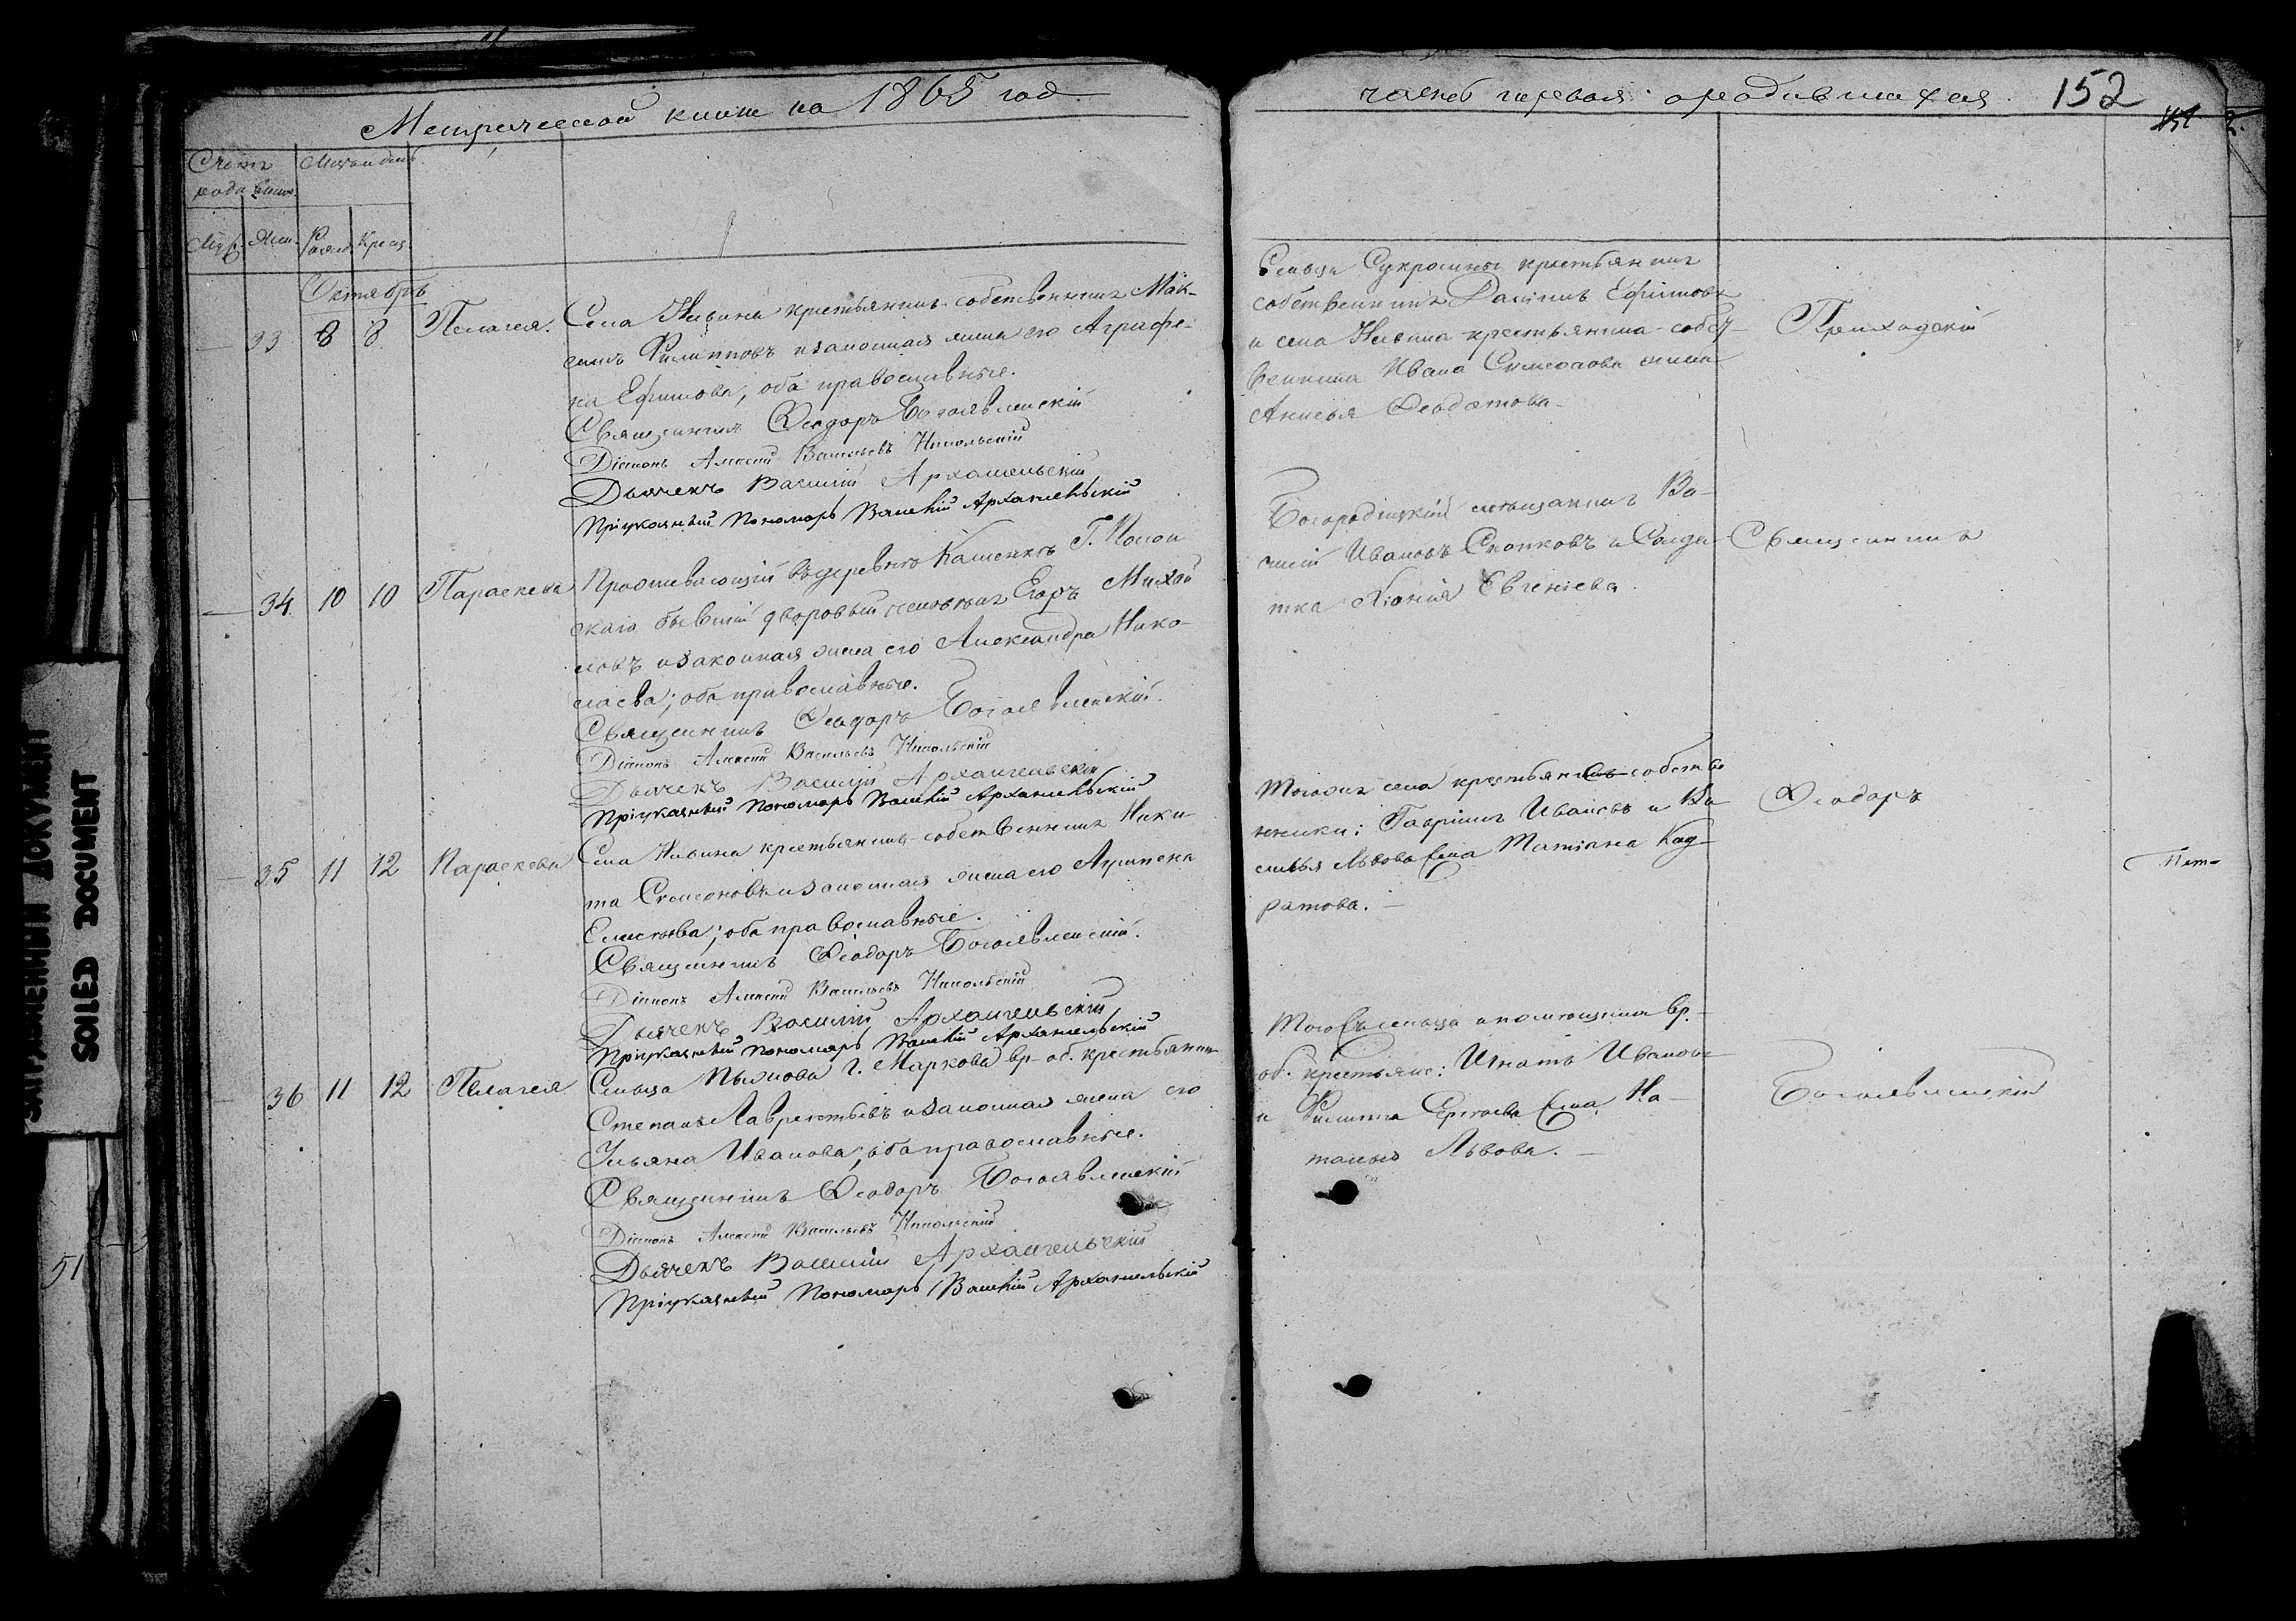 Метрической книги на 1865 год
часть первая о родившихся. 152
Счетъ родивших.
Месяц и день.
Муж. Жен. Рожд. Крещ.
Октябрь
33 8 8 Пелагея.
Села Нивина крестьянинъ-собственникъ Мак-
симъ Филипповъ и законная жена его Аграфе-
на Ефимова, оба православные.
Священникъ Ѳеодоръ Богоявленскій
Діаконъ Алексѣй Васильевъ Никольскій
Дьячекъ Василій Архангельскій
Пріуказный Пономарь Василій Архангельскій
Сельца Сукромны крестьянинъ
собственникъ Даніилъ Ефимовъ
и села Нивина крестьянина-собст-
венника Ивана Симеонова жена
Анисья Ѳеодотова.
Приходскій
34 10 10 Параскева
Проживающій въ деревнѣ Каменкѣ Г.
скаго бывшій дворовый человѣкъ Егоръ Михай
ловъ и законная жена его Александра Нико-
лаева; оба православные.
Священникъ Ѳеодоръ Богоявленскій.
Діаконъ Алексѣй Васильевъ Никольскій
Дьячекъ Василій Архангельскій
Пріуказный Пономарь Василій Архангельскій
Богородицкій мѣщанинъ Ва-
силій Ивановъ Скопковъ и Солда-
тка Хіонія Евгеніева.
Священникъ
35 11 12 Параскева
Села Нивина крестьянинъ-собственникъ Ники-
та Семеновъ и законная жена его Агрипена
Елисѣева; оба православные.
Священникъ Ѳеодоръ Богоявленскій.
Діаконъ Алексѣй Васильевъ Никольскій
Дьячекъ Василій Архангельскій
Пріуказный Пономарь Василій Архангельскій
Тогожъ села крестьяне собстве
нники: Гавріилъ Ивановъ и Ва
силья Львова жена Татіана Код-
ратова.
Ѳеодоръ
36 11 12 Пелагея
Сельца г. Маркова вр-об. крестьянинъ
Степанъ Лаврентьевъ и законная жена его
Ульяна Иванова; оба православные.
Священникъ Ѳеодоръ Богоявленскій
Діаконъ Алексѣй Васильевъ Никольскій
Дьячекъ Василій Архангельскій
Пріуказный Пономарь Василій Архангельскій
Того сельца и помещика вр.-
об. крестьяне: Игнатъ Ивановъ
и Филиппа Сергѣева жена На-
талья Львова.
Богоявленскій
SOILED DOCUMENT
51